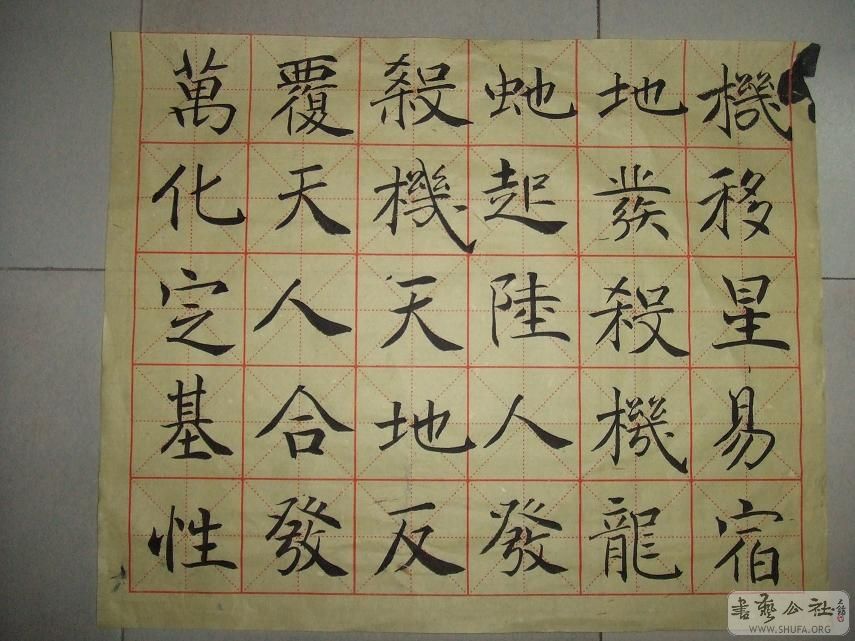 機移星易宿
地發殺機龍
虵起陸人發
殺機天地反
覆天人合發
萬化定基性
書藝公社
WWW.SHUFA.ORG